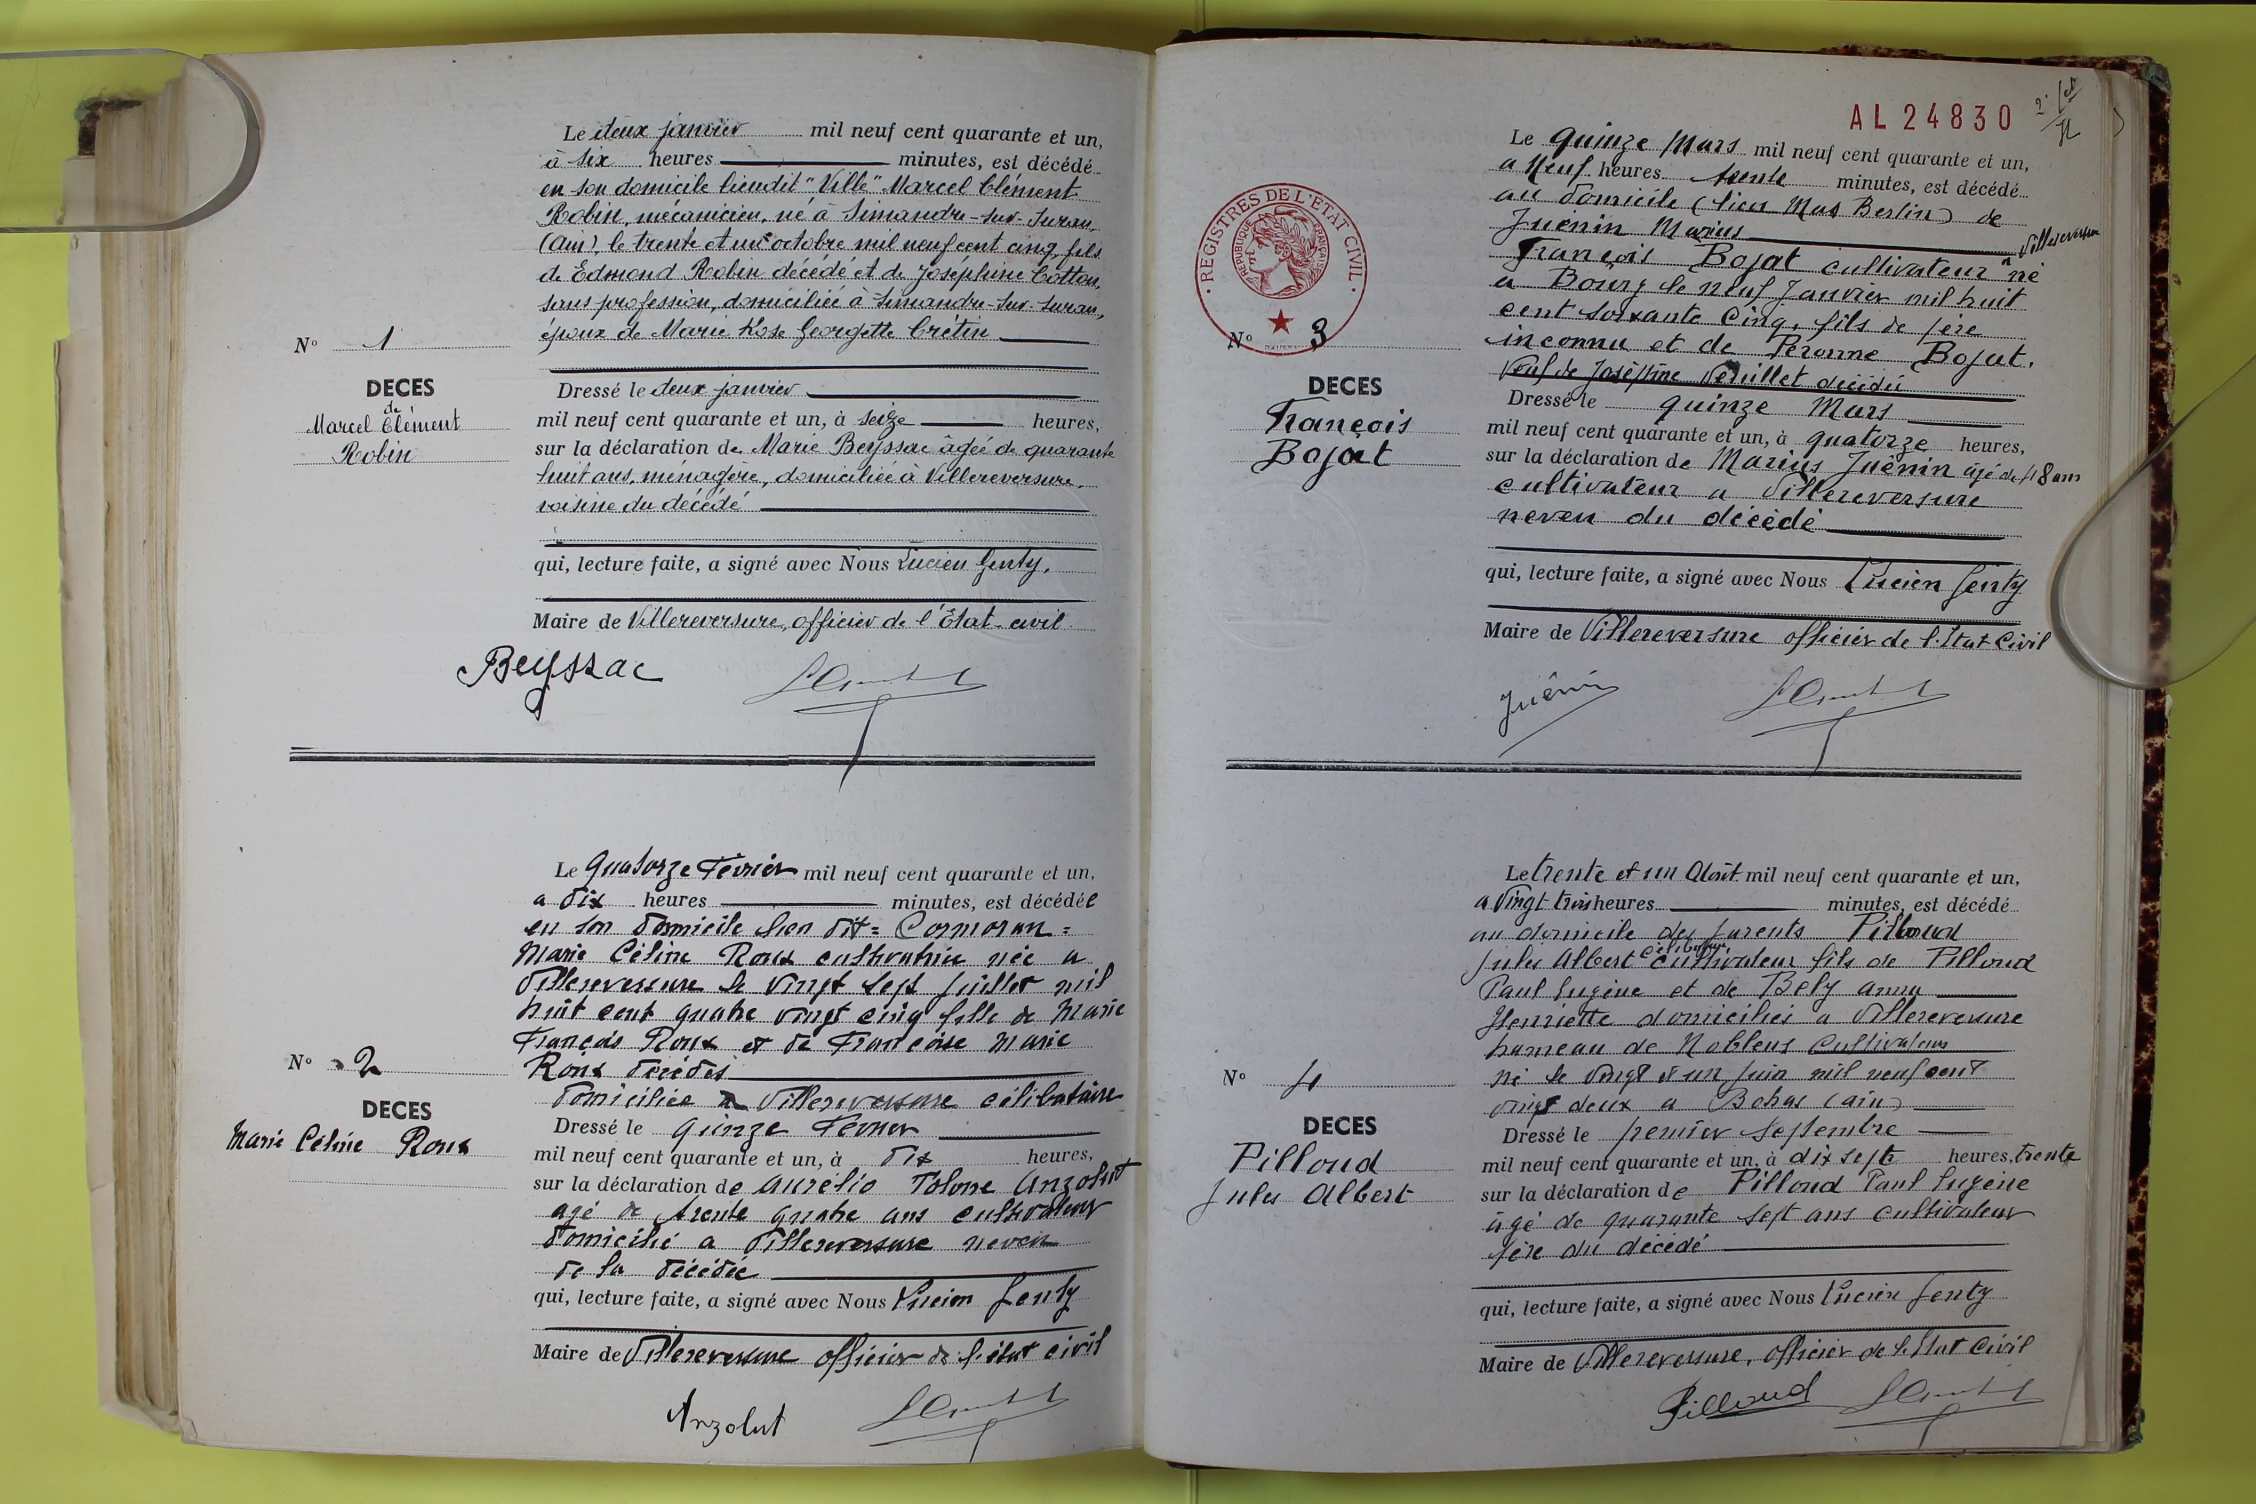 Le deux janvier mil neuf cent quarante et un,
à six heures minutes, est décédé
en son domicile lieudit "Ville" Marcel Clément
Robin, mécanicien, né à Simandre-sur-Suran,
(Ain), le trente et un octobre mil neuf cent cinq, fils
de Edmond Robin décédé et de Joséphine Cotton,
sans profession, domiciliée à Simandre-sur-Suran,
époux de Marie Rose Georgette Crétin
N° 1
DECES
de
Marcel Clément
Robin
Dressé le deux janvier
mil neuf cent quarante et un, à seize heures,
sur la déclaration de Marie Beyssac âgée de quarante
huit ans, ménagère, domiciliée à Villereversure,
voisine du décédé
qui, lecture faite, a signé avec Nous Lucien Genty,
Maire de Villereversure, officier de l'Etat-civil
Beyssac
Le Quatorze Février mil neuf cent quarante et un,
a dix heures minutes, est décédée
en son domicile lieu dit = Cormoran =
Marie Céline Roux cultivatrice née a
Villereversure le vingt sept juillet mil
huit cent quatre vingt cinq fille de Marie
François Roux et de Françoise Marie
Roux décédés
domiciliée a Villereversure célibataire
N° 2
DECES
Marie Céline Roux
Dressé le quinze Février
mil neuf cent quarante et un, à dix heures,
sur la déclaration de Aurelio Anzolut
agé de trente quatre ans cultivateur
domicilié a Villereversure neveu
de la décédée
qui, lecture faite, a signé avec Nous Lucien Genty
Maire de Villereversure officier de l'état civil
Anzolut
AL 24830
REGISTRES DE L'ETAT CIVIL
REPUBLIQUE FRANÇAISE
Le quinze Mars mil neuf cent quarante et un,
a Neuf heures trente minutes, est décédé
au domicile (lieu Mas Berlin) de
Juénin Marius
Villereversure
François Bojat cultivateur né
a Bourg le neuf Janvier mil huit
cent soixante cinq, fils de père
inconnu et de Péronne Bojat,
Veuf de Joséphine Veuillet décédée
N° 3
DECES
François
Bojat
Dressé le quinze Mars
mil neuf cent quarante et un, à quatorze heures,
sur la déclaration de Marius Juénin âgé de 48 ans
cultivateur a Villereversure
neveu du décédé
qui, lecture faite, a signé avec Nous Lucien Genty
Maire de Villereversure officier de l'Etat Civil
Juénin
Le trente et un Août mil neuf cent quarante et un,
a Vingt trois heures minutes, est décédé
au domicile des parents Pilloud
célibataire
Jules Albert cultivateur fils de Pilloud
Paul Eugène et de Bely Anna
Henriette domiciliés a Villereversure
hameau de Noblens cultivateurs
né le vingt et un juin mil neuf cent
vingt deux a Bohas (Ain)
N° 4
DECES
Pilloud
Jules Albert
Dressé le premier septembre
mil neuf cent quarante et un, à dix sept heures, trente
sur la déclaration de Pilloud Paul Eugène
âgé de quarante sept ans cultivateur
père du décédé
qui, lecture faite, a signé avec Nous Lucien Genty
Maire de Villereversure, officier de l'Etat Civil
Pilloud